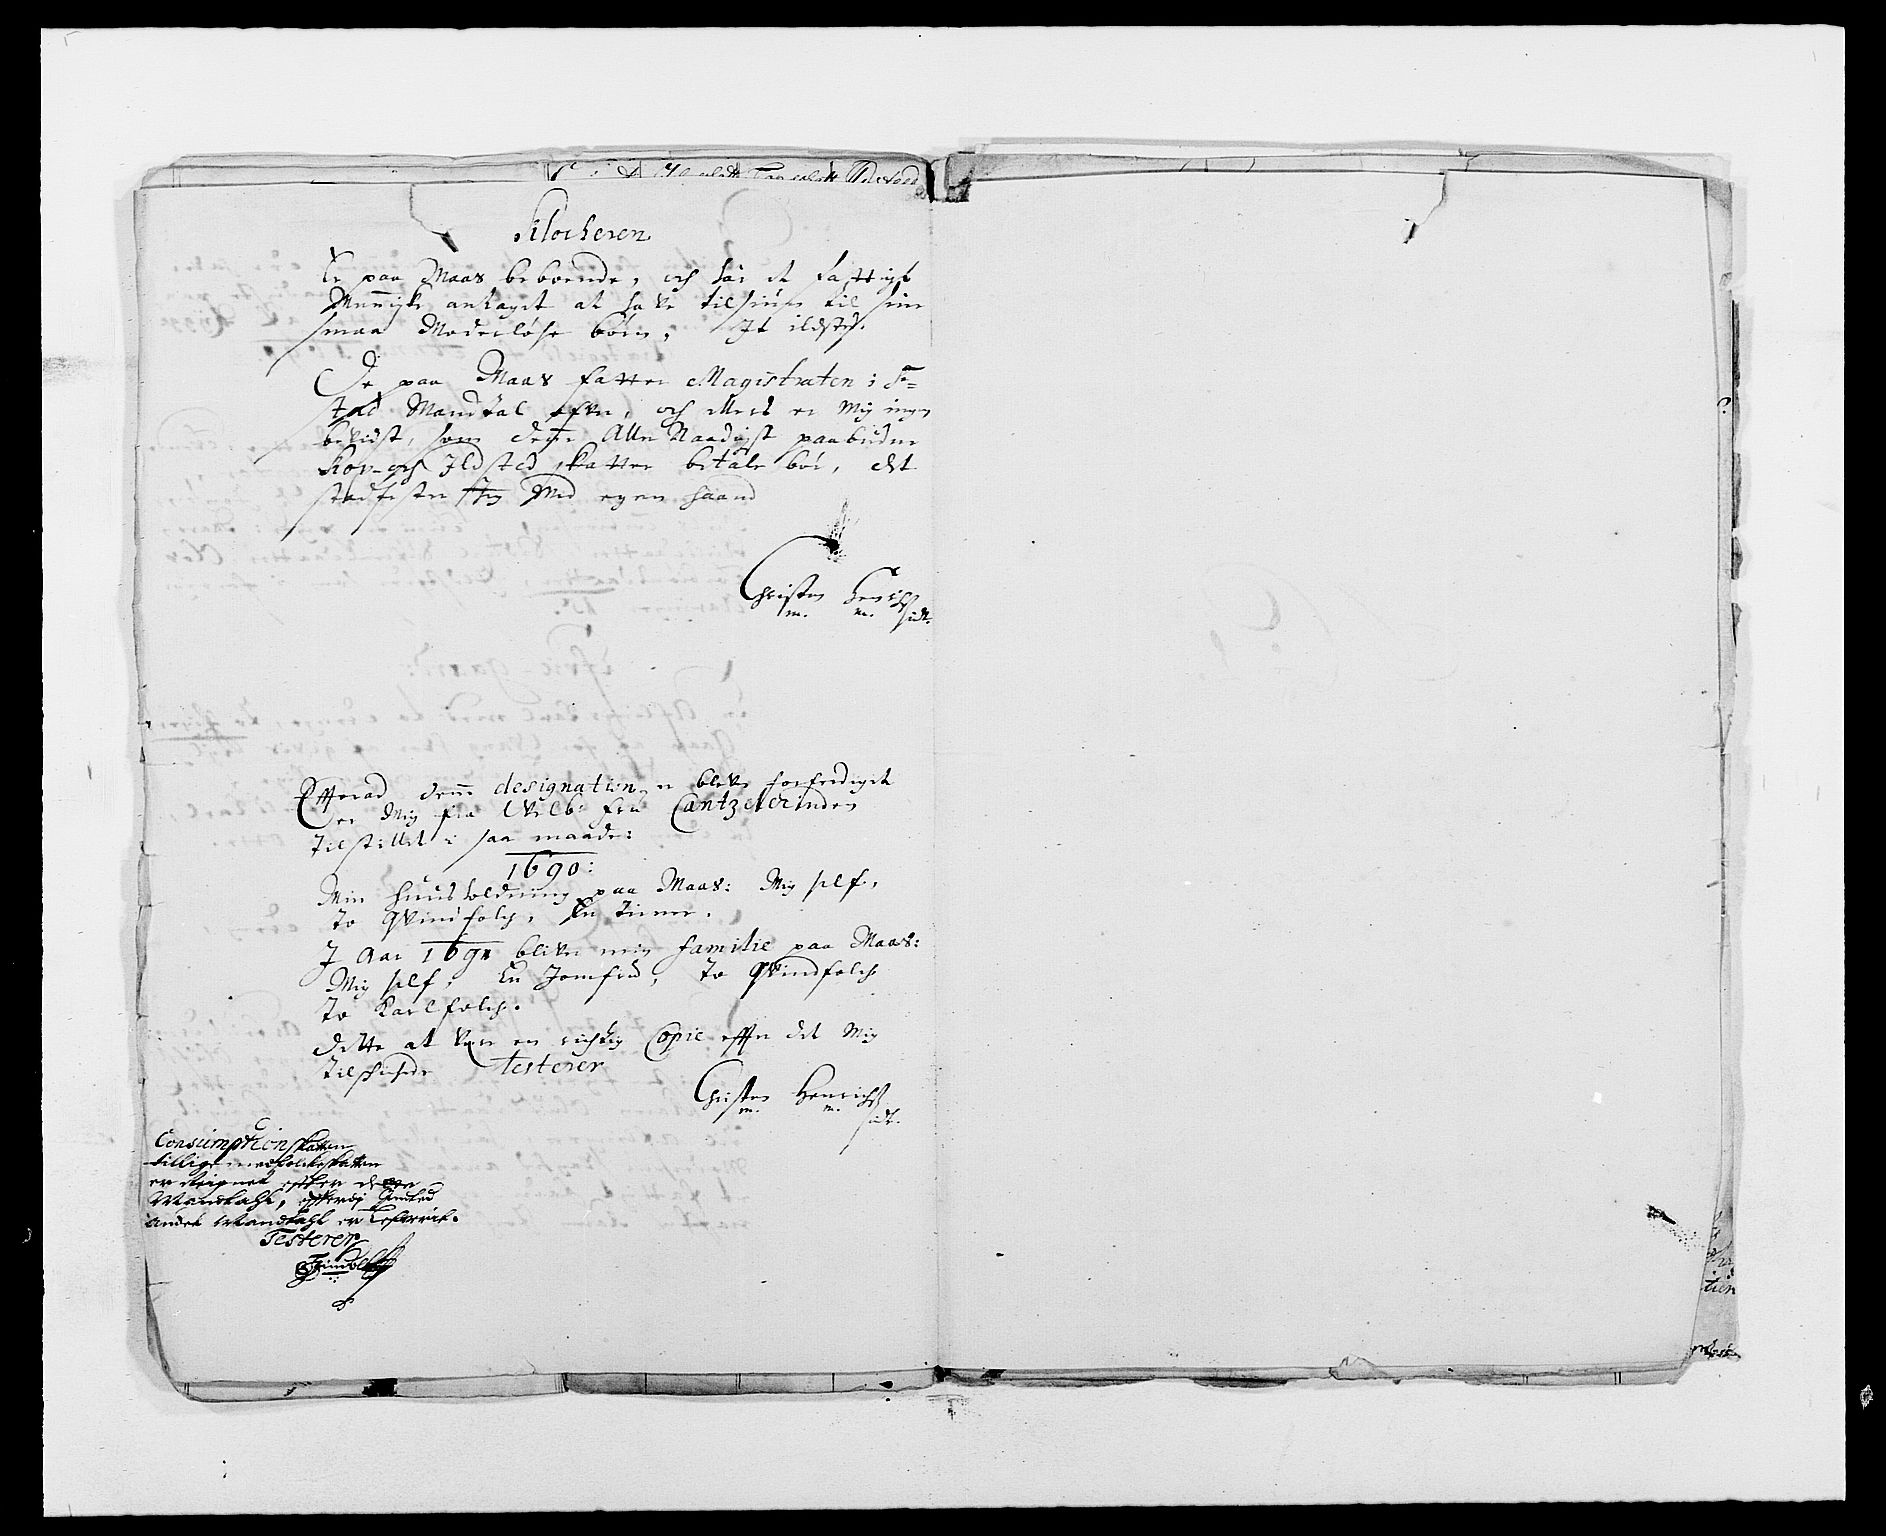 Klocheren
Er paa Moss beboende, och har et fattigt
Menniske antaget at have tilsiun til sine
smaa Moderløse børn, It ildsted.
De paa Moss fatter Magistraten i Sit
Mandtal efter, och ellers er mig ingen
bevidst, som denne Aller Naadigst paabudne
Kop- och Ildsted skatter betale bør, det
stadfester Jeg Med egen haand
Christen Henrichs
m. m.
Efterad denne designation er bleven forferdiget
er Mig fra Velb: Fru Cantzelerinden
tilstillet i saa maade:
1690:
Min huusholdning paa Moss: Mig self,
to Qvindfolch, En tiener.
J Aar 1691 bliver min familie paa Moss:
Mig self, En Jomfru, to Qvindfolch
to Karlfolch.
Dette at være en richtig Copie effter det Mig
tilschichede Testerer
Christen Henrichs
m. m.
Consumptionskatten
tillige med folcheskatten
er Reignet efter denne
Mandtahl, efterdj Jntet
andet Mandtahl er lefverit.
Testerer